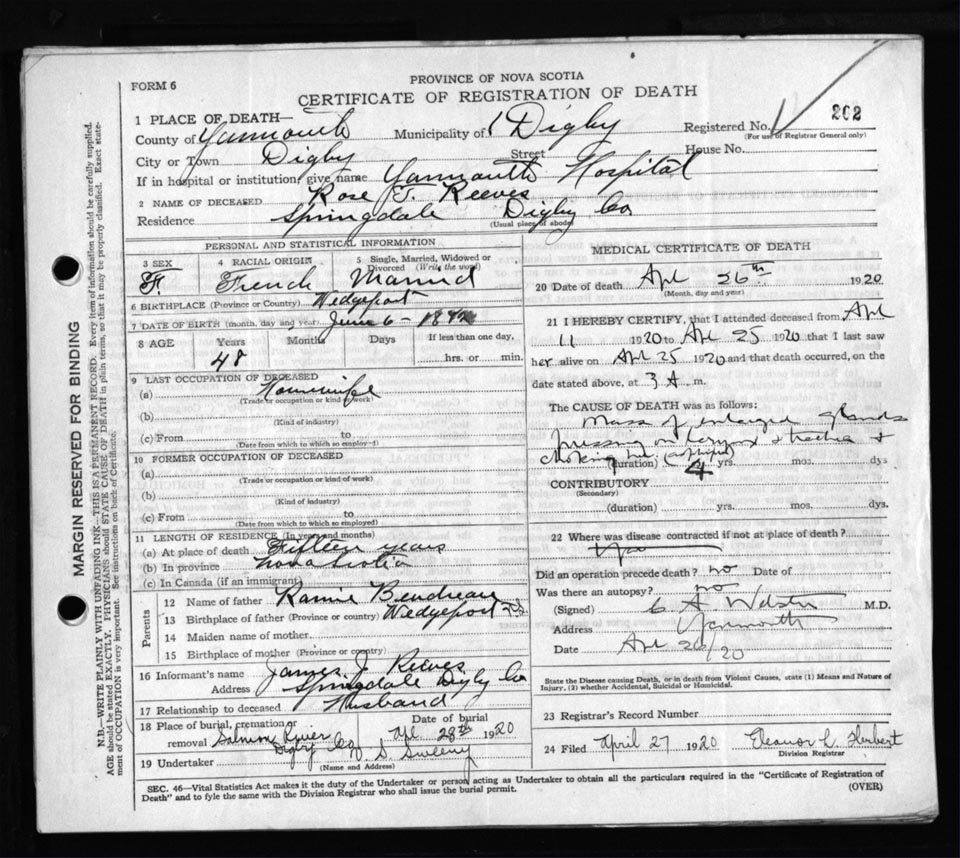 PROVINCE OF NOVA SCOTIA
FORM 6
CERTIFICATE OF REGISTRATION OF DEATH
1 PLACE OF DEATH—
County of Yarmouth Municipality of Digby Registered No. 202
(For use of Registrar General only)
City or Town Digby Street House No.
If in hospital or institution, give name Yarmouth Hospital
2 NAME OF DECEASED Rose J. Reeves
Residence Springdale Digby Co
(Usual place of abode)
PERSONAL AND STATISTICAL INFORMATION
3 SEX 4 RACIAL ORIGIN 5 Single, Married, Widowed or Divorced (Write the word)
F. French Married
6 BIRTHPLACE (Province or Country) Wedgeport
7 DATE OF BIRTH (month, day and year) June 6 - 18
8 AGE Years Months Days If less than one day,
48 hrs. or min.
9 LAST OCCUPATION OF DECEASED
(a) Housewife
(Trade or occupation or kind of work)
(b)
(Kind of industry)
(c) From to
(Date from which to which so employed)
10 FORMER OCCUPATION OF DECEASED
(a)
(Trade or occupation or kind of work)
(b)
(Kind of industry)
(c) From to
(Date from which to which so employed)
11 LENGTH OF RESIDENCE (In years and months)
(a) At place of death Fifteen years
(b) In province Nova Scotia
(c) In Canada (if an immigrant)
Parents
12 Name of father
13 Birthplace of father (Province or country) Wedgeport N.S.
14 Maiden name of mother
15 Birthplace of mother (Province or country)
16 Informant's name James J. Reeves
Address Springdale Digby Co
17 Relationship to deceased Husband
18 Place of burial, cremation or removal Salmon River Digby Co Date of burial Apl 28th 1920
19 Undertaker S Sweeny
(Name and Address)
MEDICAL CERTIFICATE OF DEATH
20 Date of death Apl 26th 1920
(Month, day and year)
21 I HEREBY CERTIFY, that I attended deceased from Apl
11 1920 to Apl 25 1920 that I last saw
her alive on Apl 25 1920 and that death occurred, on the
date stated above, at 3 A. m.
The CAUSE OF DEATH was as follows:
Mass of enlarged glands
pressing on larynx & trachea &
choking her
(duration) 4 yrs. mos. dys
CONTRIBUTORY
(Secondary)
(duration) yrs. mos. dys.
22 Where was disease contracted if not at place of death?
Did an operation precede death? no Date of
Was there an autopsy? no
(Signed) C. A. Webster M.D.
Address Yarmouth
Date Apl 26/20
State the Disease causing Death, or in death from Violent Causes, state (1) Means and Nature of
Injury, (2) whether Accidental, Suicidal or Homicidal.
23 Registrar's Record Number
24 Filed April 27 1920 Eleanor L. Herbert
Division Registrar
SEC. 46—Vital Statistics Act makes it the duty of the Undertaker or person acting as Undertaker to obtain all the particulars required in the "Certificate of Registration of
Death" and to fyle the same with the Division Registrar who shall issue the burial permit. (OVER)
MARGIN RESERVED FOR BINDING
N.B.—WRITE PLAINLY WITH UNFADING INK—THIS IS A PERMANENT RECORD. Every item of information should be carefully supplied.
AGE should be stated EXACTLY. PHYSICIANS should STATE CAUSE OF DEATH in plain terms, so that it may be properly classified. Exact state-
ment of OCCUPATION is very important. See instructions on back of Certificate.